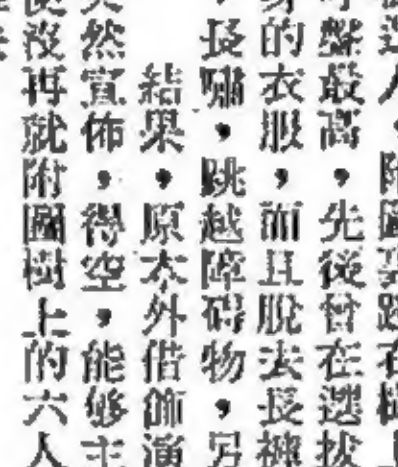 聲最高，先後曾在選拔
身的衣服，而且脫去長褲
，長嘯，跳越障碍物，另
結果，原本外借飾演
然宣佈，得空，能够主
沒再就附圖樹上的六人